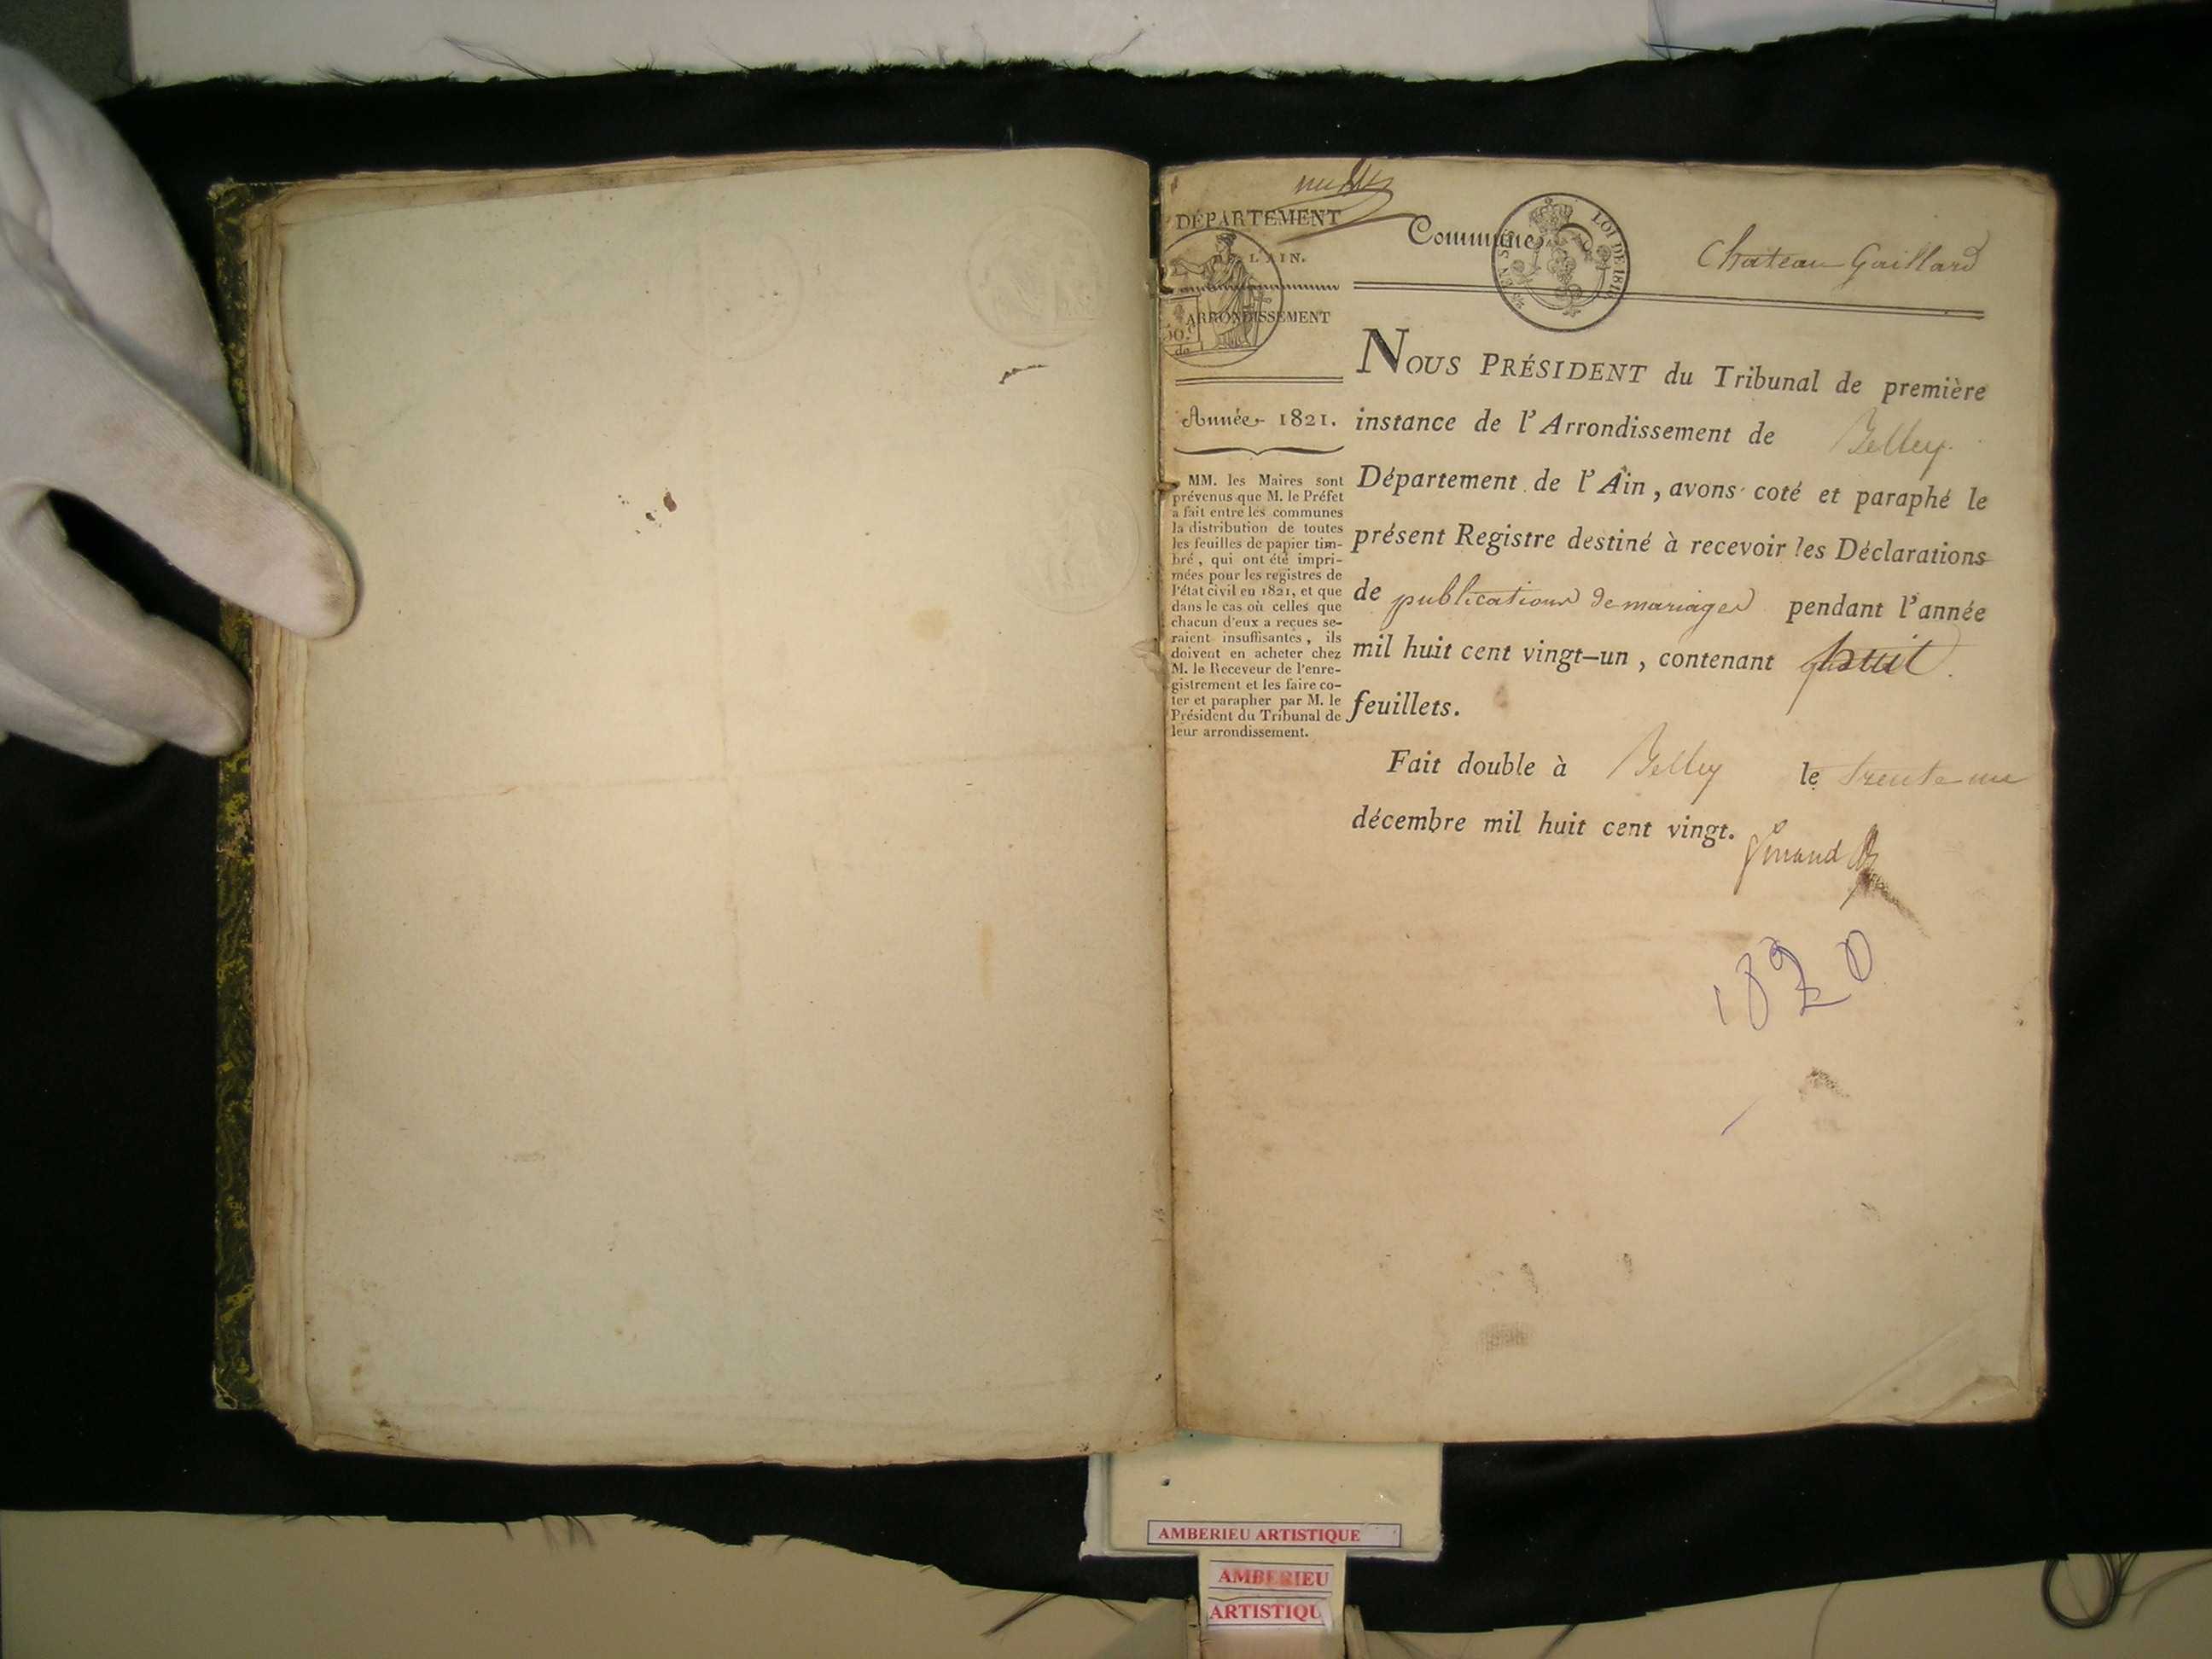 DÉPARTEMENT
L'AIN.
ARRONDISSEMENT
50.
Année 1821.
MM. les Maires sont
prévenus que M. le Préfet
a fait entre les communes
la distribution de toutes
les feuilles de papier tim-
bré, qui ont été impri-
mées pour les registres de
l'état civil en 1821, et que
dans le cas où celles que
chacun d'eux a reçues se-
raient insuffisantes, ils
doivent en acheter chez
M. le Receveur de l'enre-
gistrement et les faire co-
ter et parapher par M. le
Président du Tribunal de
leur arrondissement.
Commune
LOI DE 1816
Chateau Gaillard
NOUS PRÉSIDENT du Tribunal de première
instance de l'Arrondissement de Belley
Département de l'Ain, avons coté et paraphé le
présent Registre destiné à recevoir les Déclarations
de publications de mariages pendant l'année
mil huit cent vingt-un, contenant huit
feuillets.
Fait double à Belley le trente un
décembre mil huit cent vingt.
1820
AMBERIEU ARTISTIQUE
AMBERIEU
ARTISTIQU